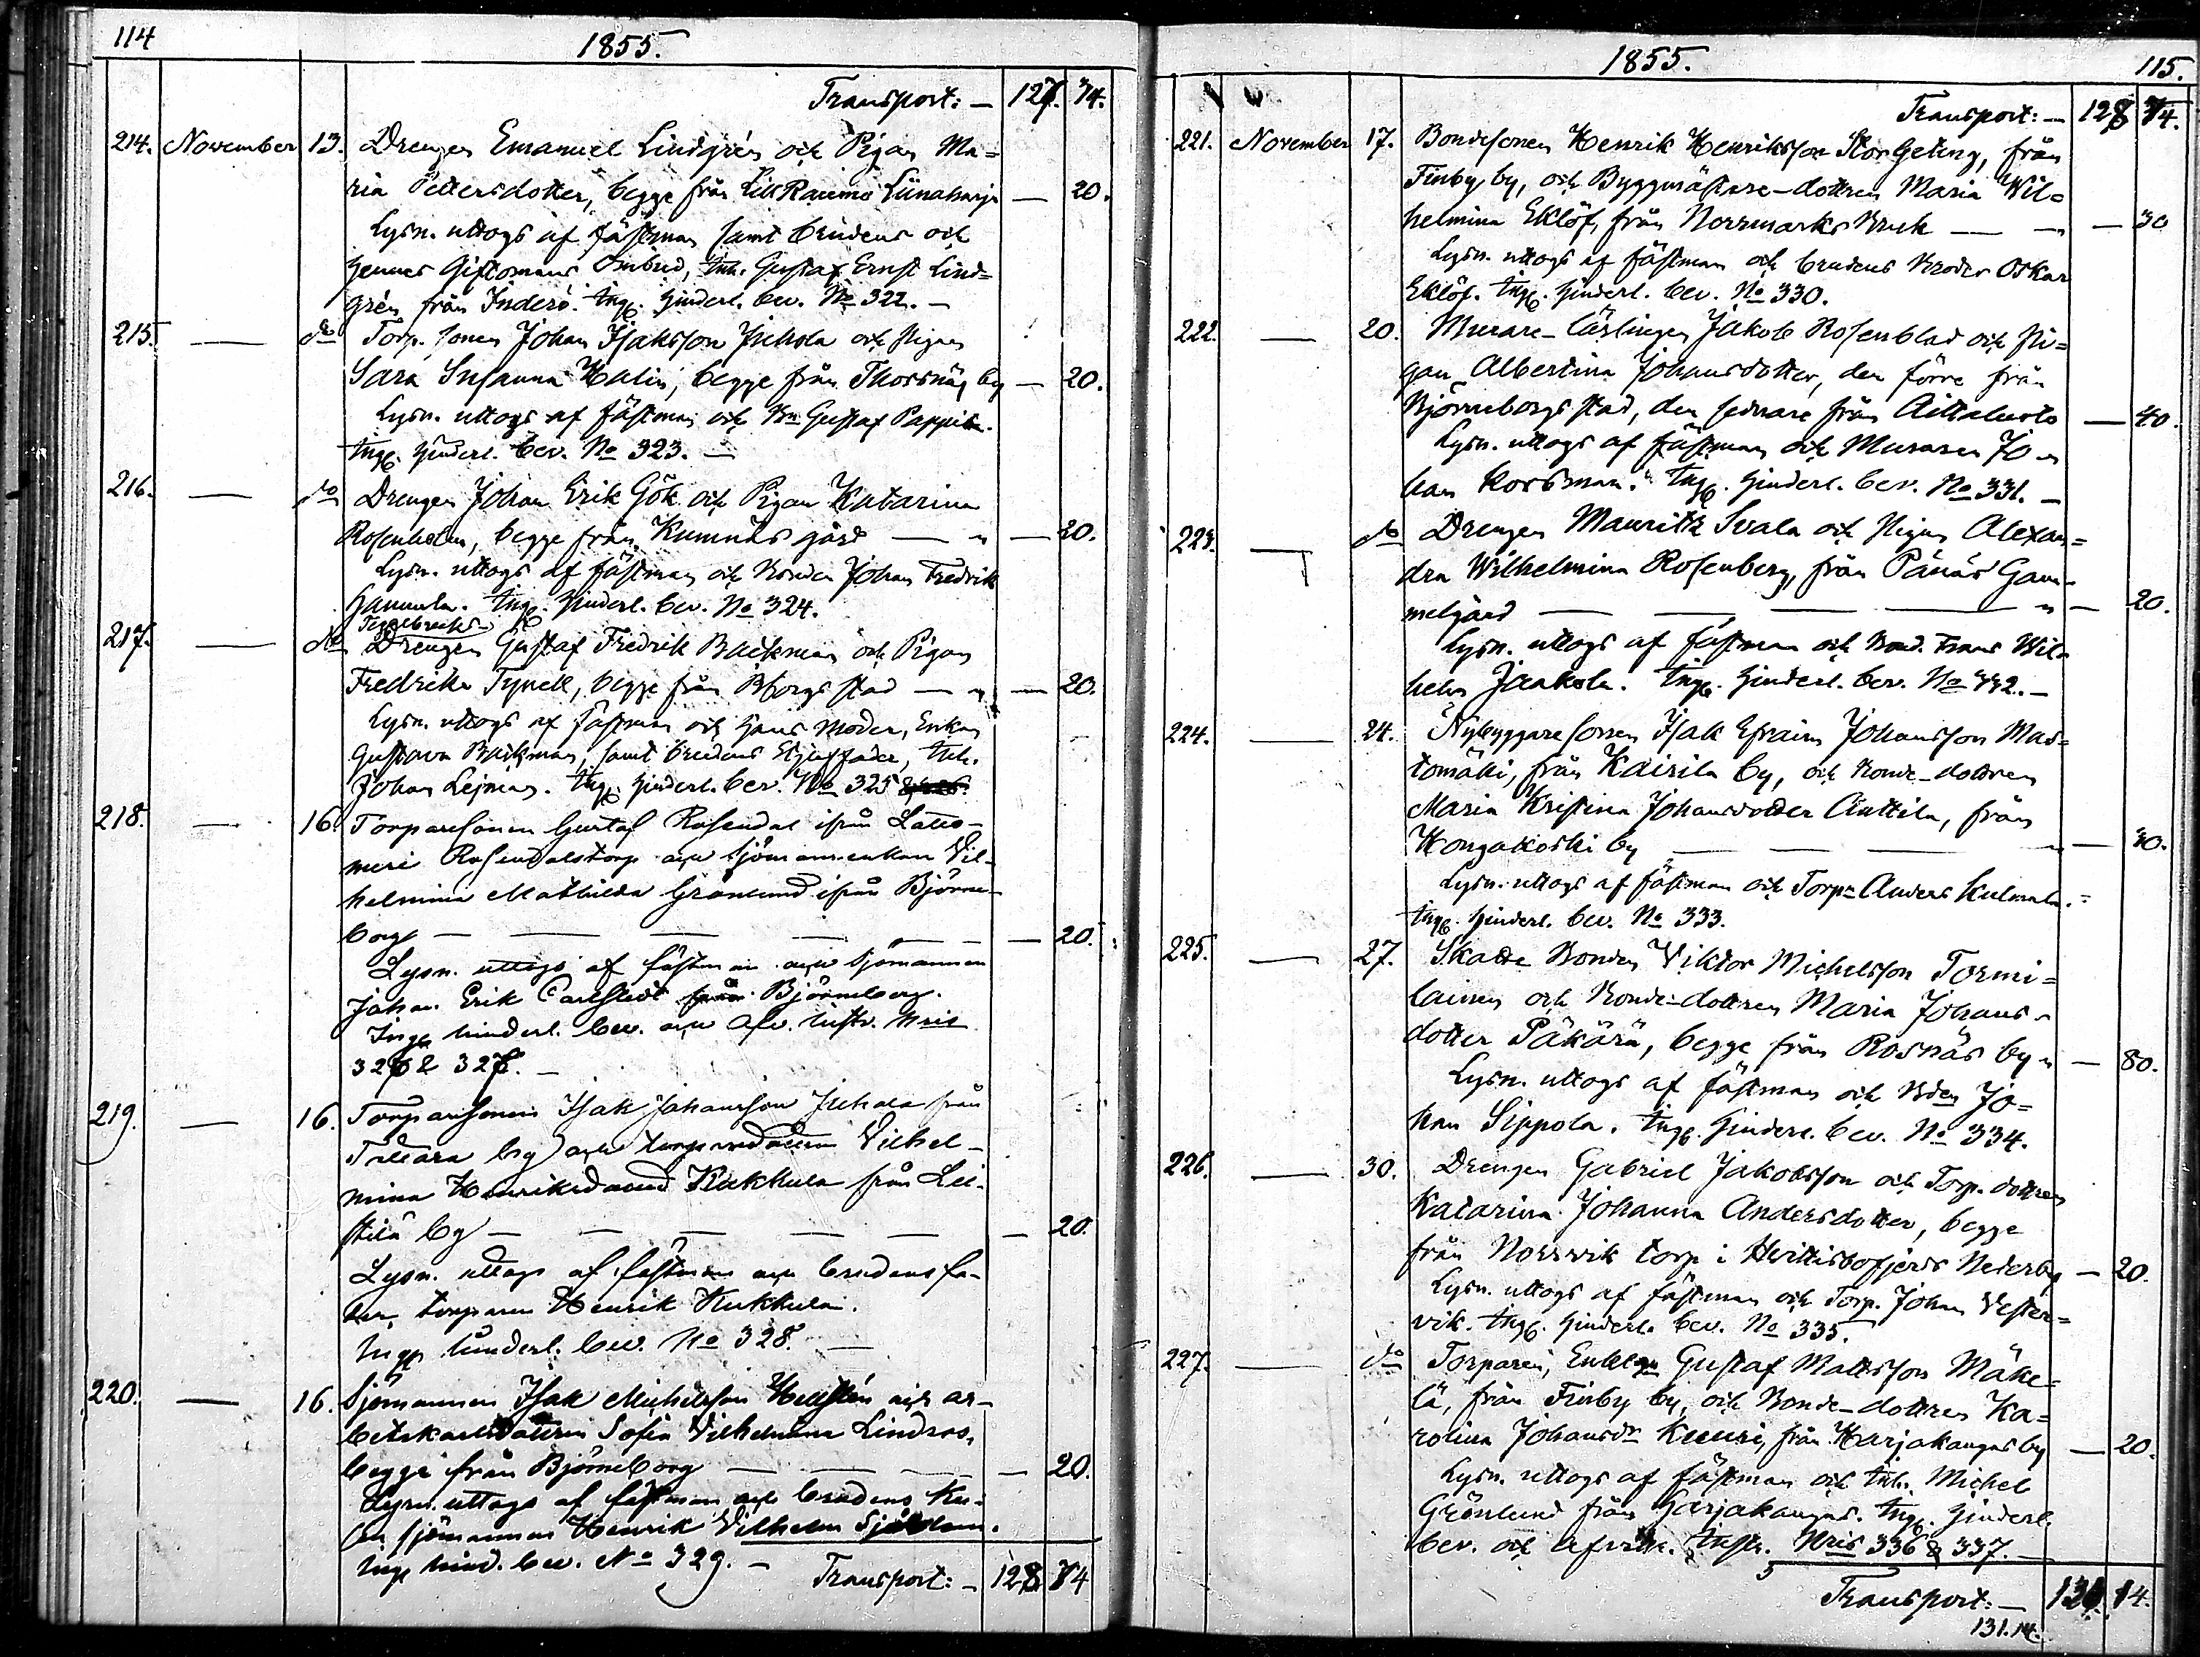 114
1855.
Transport: — 127. 74.
214. November 13. Drengen Emanuel Lindgrén och Pigan Ma=
ria Pettersdotter, begge från Lill Raumo Liinaharja — 20.
Lysn. uttogs af fästman samt brudens och
hennes Giftomans Ombud, Inh. Gustaf Ernst Lind=
grén från Inderö. Ingg. hinderl. bev. No 322. —
215. — do Torp. sonen Johan Isaksson Juhola och Pigan
Sara Susanna Malin, begge från Thorsnäs by — 20.
Lysn. uttogs af fästman och Bn Gustaf Pappila.
Ingg. hinderl. bev. No 323. —
216. — do Drengen Johan Erik Gök och Pigan Katarina
Rosenholm, begge från Kumnäs gård — " — 20.
Lysn. uttogs af fästman och Bonden Johan Fredrik
Hannula. Ingg. hinderl. bev. No 324.
Tegelbruks
217. — do Drengen Gustaf Fredrik Backman och Pigan
Fredrika Tynell, begge från Bborgs stad — " — 20.
Lysn. uttogs af fästman och hans Moder, Enkan
Gustava Backman, samt brudens Styffader, Inh.
Johan Lejman. Ingg. hinderl. bev. No 325
218. — 16. Torparesonen Gustaf Rosendal ifrån Latto-
meri Rosendalstorp och Sjömansenkan Vil-
helmina Mathilda Grönlund ifrån Björne-
borg — — — — — 20.
Lysn. uttogs af fästman och Sjömannen
Johan Erik Carlstedt från Björneborg.
Ingg hinderl. bev. och afv. Nris
326 & 327. —
219. — 16. Torparesonen Isak Johansson Juhola från
by och torparedottren Vilhel-
mina Henriksdotter Kukkula från Lei-
stilä by — — — — — 20.
Lysn. uttogs af fästman och brudens fa-
der, torparen Henrik Kukkula.
Ingg hinderl. bev. No 328. —
220. — 16. Sjömannen Isak Michelsson Hellstén och ar-
betskarlsdottren Sofia Vilhelmina Lindroos,
begge från Björneborg — — — 20.
Lysn. uttogs af fästman och brudens Ku-
sin sjömannen Henrik Vilhelm Sjöblom.
Ingg hind. bev. No 329. —
Transport: — 128 74
1855.
115.
Transport: — 128 74.
221. November 17. Bondesonen Henrik Henriksson Storgeting, från
Finby by, och Byggmästare-dottren Maria Wil=
helmina Eklöf, från Norrmarks Bruk — " — 30
Lysn. uttogs af fästman och brudens Broder Oskar
Eklöf. Ingg. hinderl. bev. No 330.
222. — 20. Murare-lärlingen Jakob Rosenblad och Pi=
gan Albertina Johansdotter, den förre från
Björneborgs stad, den sednare från Aittaluoto — 40.
Lysn. uttogs af fästman och Muraren Jo=
han Korsman. Ingg. hinderl. bev. No 331. —
223. — do Drengen Mauritz Svala och Pigan Alexan=
dra Wilhelmina Rosenberg, från Pänäs Gam=
melgård — — — " — 20.
Lysn. uttogs af fästman och Bond. Frans Wil=
helm Jaakola. Ingg. hinderl. bev. No 332. —
224. — 24. Nybyggaresonen Isak Efraim Johansson Mas=
tomäki, från Kairila by, och Bonde-dottren
Maria Kristina Johansdotter Anttila, från
Kongakoski by — — " — 30.
Lysn. uttogs af fästman och Torp= Anders Kulmala.
Ingg. hinderl. bev. No 333.
225. — 27. Skatte Bonden Viktor Michelsson Tormi=
lainen och Bonde-dottren Maria Johans=
dotter Päkärä, begge från Rosnäs by " — 80.
Lysn. uttogs af fästman och Bden Jo=
han Sippola. Ingg. hinderl. bev. No 334.
226. — 30. Drengen Gabriel Jakobsson och Torp. dottren
Katarina Johanna Andersdotter, begge
från Norrvik torp i Hvittisbofjerds Nederby — 20.
Lysn. uttogs af fästman och Torp. Johan Vester=
vik. Ingg. hinderl. bev. No 335.
227. — do Torparen, Enklgn Gustaf Mattsson Mäke=
lä, från Finby by, och Bonde-dottren Ka=
rolina Johansdr Kuusi, från Harjakangas by — 20.
Lysn. uttogs af fästman och Inh. Michel
Grönlund från Harjakangas. Ingg. hinderl.
bev. och afvittr. Instr. Nris 336 & 337. —
Transport: — 130. 14.
131.14.